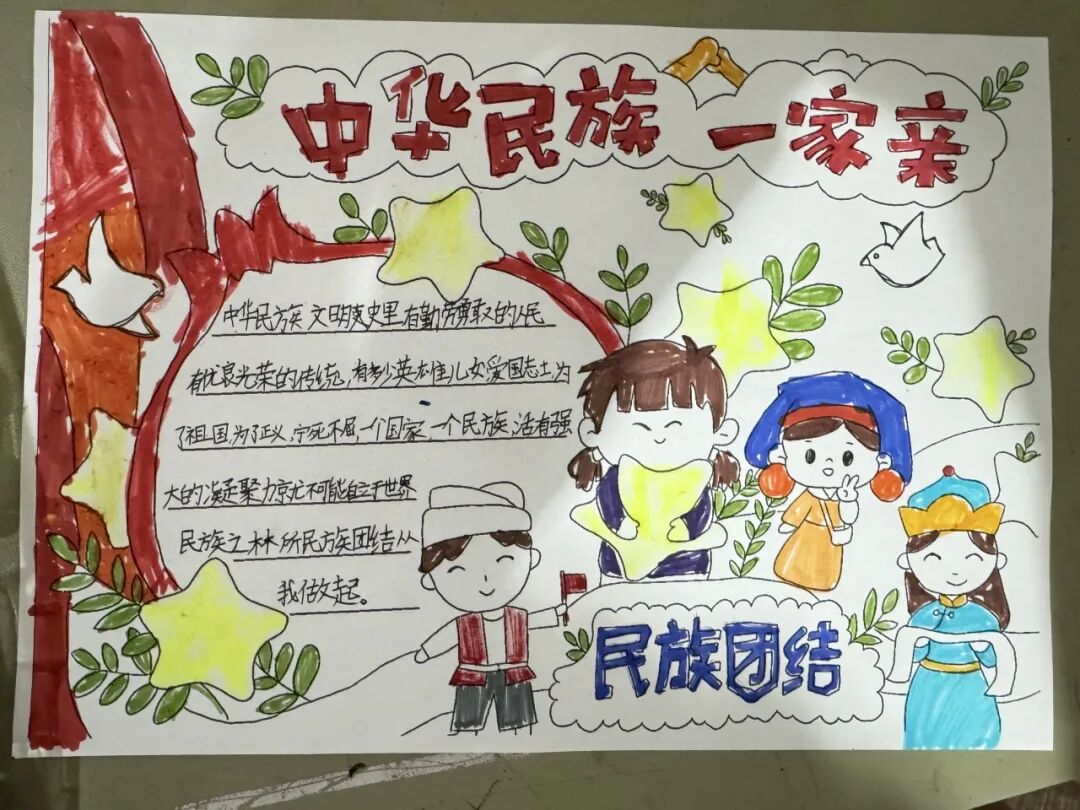 中华民族 一家亲
中华民族文明史里,有勤劳勇敢的人民
有优良光荣的传统,有多少英雄儿女爱国志士为
了祖国,为了正义,宁死不屈,一个国家,一个民族,没有强
大的凝聚力就不可能自立于世界
民族之林,所民族团结从
我做起。
民族团结